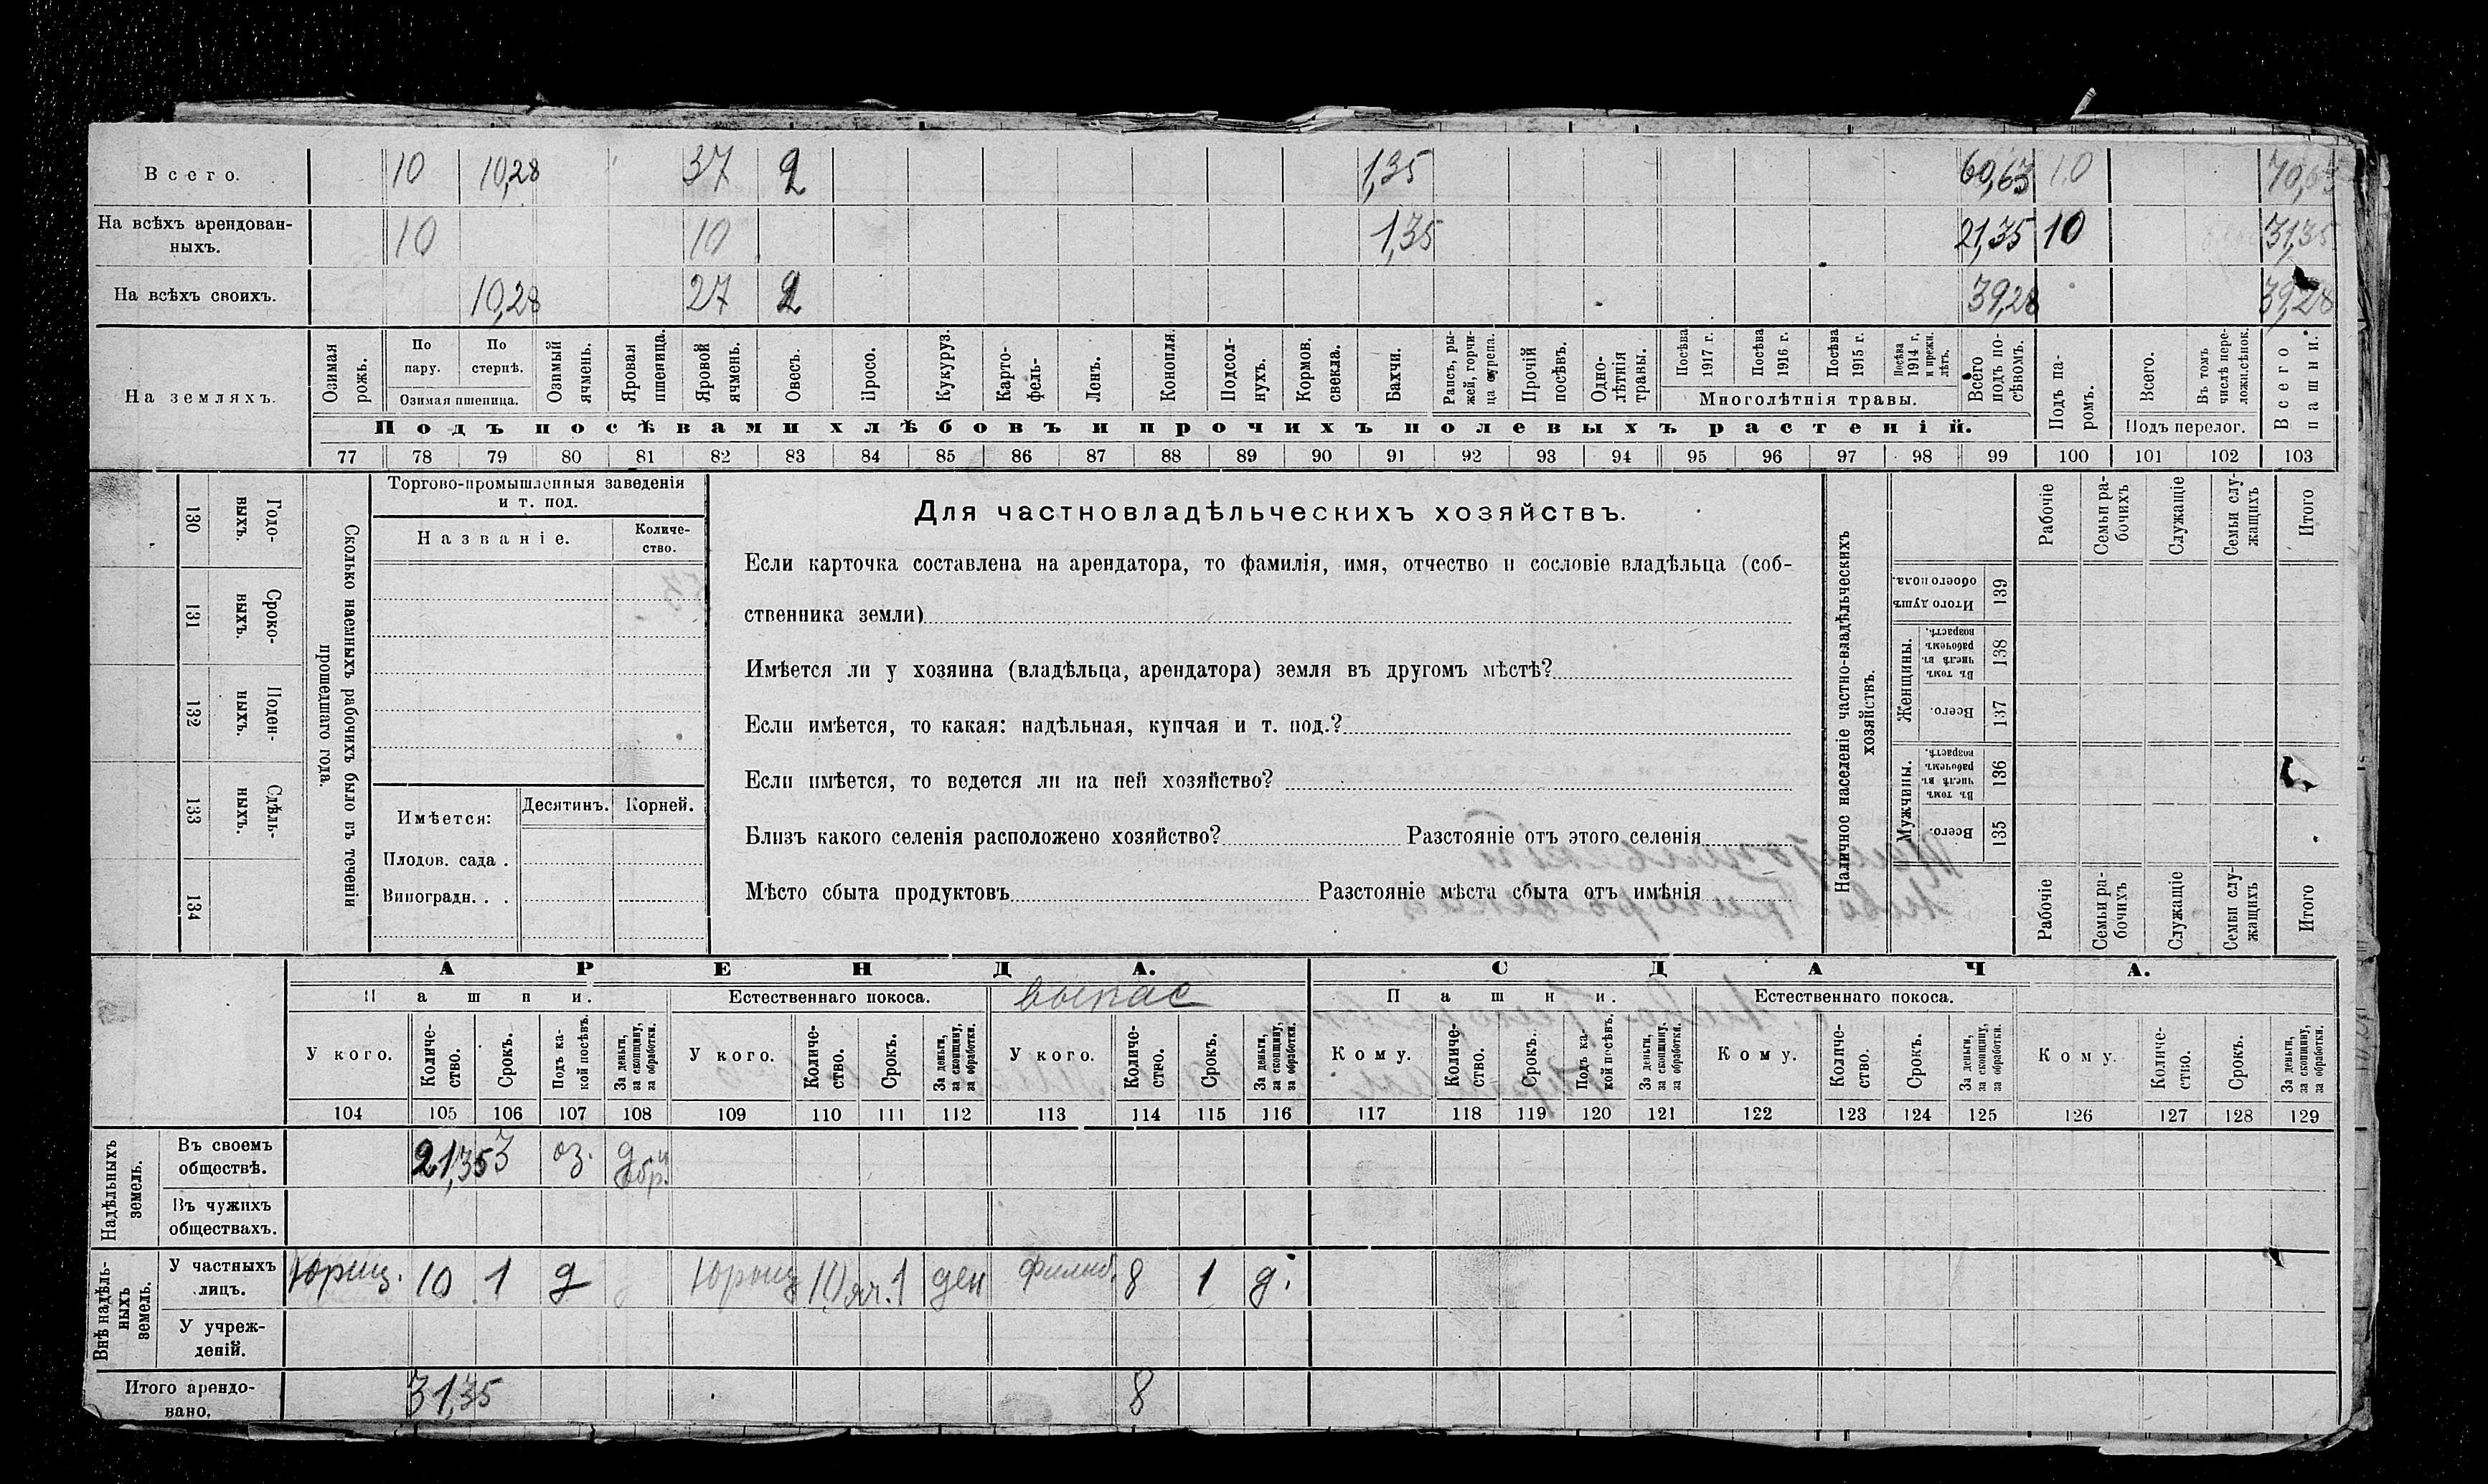 Всего. 10 10,28 37 2 1,35 60,63 10 70,63
На всѣхъ арендован-
ныхъ. 10 10 1,35 21,35 10 31,35
На всѣхъ своихъ. 10,28 27 2 39,28 39,28
На земляхъ.
Озимая рожь.
По пару.
По стернѣ.
Озимая пшеница.
Озимый ячмень.
Яровая пшеница.
Яровой ячмень.
Овесъ.
Просо.
Кукуруз.
Карто-
фель-
Ленъ.
Конопля.
Подсол-
нухъ.
Кормов. свекла.
Бахчи.
Рапсъ, ры-
жей, горчи-
ца сурепа.
Прочій посѣвъ.
Одно-
лѣтнія травы.
Посѣва 1917 г.
Посѣва 1916 г.
Посѣва 1915 г.
Посѣва 1914 г. и прежн. лѣтъ.
Многолѣтнія травы.
Всего подъ по-
сѣвомъ.
Подъ посѣвами хлѣбовъ и прочихъ полевыхъ растеній.
Подъ па-
ромъ.
Всего.
Въ томъ числѣ пере-
ложн. сѣнок.
Подъ перелог.
Всего пашни.
77 78 79 80 81 82 83 84 85 86 87 88 89 90 91 92 93 94 95 96 97 98 99 100 101 102 103
Сколько наемныхъ рабочихъ было въ теченіи
прошедшаго года.
Годо-
выхъ. 130
Сроко-
выхъ. 131
Поден-
ныхъ. 132
Сдѣль-
ныхъ. 133
134
Торгово-промышленныя заведенія
и т. под.
Названіе. Количе-
ство.
Имѣется: Десятинъ. Корней.
Плодов. сада .
Виноградн. . .
Для частновладѣльческихъ хозяйствъ.
Если карточка составлена на арендатора, то фамилія, имя, отчество и сословіе владѣльца (соб-
ственника земли)
Имѣется ли у хозяина (владѣльца, арендатора) земля въ другомъ мѣстѣ?
Если имѣется, то какая: надѣльная, купчая и т. под.?
Если имѣется, то ведется ли на ней хозяйство?
Близъ какого селенія расположено хозяйство? Разстояніе отъ этого селенія
Мѣсто сбыта продуктовъ Разстояніе мѣста сбыта отъ имѣнія
Наличное населеніе частно-владѣльческихъ
хозяйствъ.
Рабочіе
Семьи ра-
бочихъ
Служащіе
Семьи слу-
жащихъ
Итого
Итого душъ
обоего пола. 139
Женщины.
Въ томъ числѣ въ рабочемъ возрастѣ. 138
Всего. 137
Мужчины.
Въ томъ числѣ въ рабочемъ возрастѣ. 136
Всего. 135
Рабочіе
Семьи ра-
бочихъ
Служащіе
Семьи слу-
жащихъ
Итого
АРЕНДА. СДАЧА.
Пашни. Естественнаго покоса. выпас Пашни. Естественнаго покоса.
У кого. Количе-
ство. Срокъ. Подъ ка-
кой посѣвъ. За деньги, за скопщину, за обработки.
У кого. Количе-
ство. Срокъ. За деньги, за скопщину, за обработки.
У кого. Количе-
ство. Срокъ. За деньги, за скопщину, за обработки.
Кому. Количе-
ство. Срокъ. Подъ ка-
кой посѣвъ. За деньги, за скопщину, за обработки.
Кому. Количе-
ство. Срокъ. За деньги, за скопщину, за обработки.
Кому. Количе-
ство. Срокъ. За деньги, за скопщину, за обработки.
104 105 106 107 108 109 110 111 112 113 114 115 116 117 118 119 120 121 122 123 124 125 126 127 128 129
Надѣльныхъ
земель.
Въ своемъ
обществѣ. 21,35 3 оз.
Въ чужихъ
обществахъ.
Внѣ надѣль-
ныхъ
земель.
У частныхъ
лицъ. 10 1 д 10 1 ден 8 1 д.
У учреж-
деній.
Итого арендо-
вано. 31,35 8